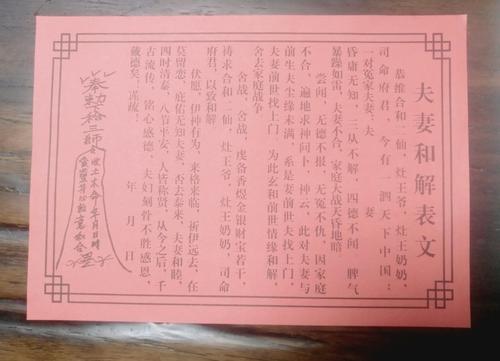 夫妻和解表文
恭维合和二仙，灶王爷，灶王奶奶，
司命府君，今有一泗天下中国：
一对冤家夫妻：夫　　　妻
昏庸无知，三从不解，四德不问　脾气
暴躁如雷，夫妻不合，家庭大战天昏地暗
尝闻，无德不报，无冤不仇，因家庭
不合，遍地求神问卜，神云，此对夫妻与
前生夫尘缘未满，系是妻前世夫找上门，
夫妻前世找上门，为此玄和前世情缘和解，
舍去家庭战争
舍战，舍战，虔备香煜金银财宝若干，
祷求合和二仙，灶王爷，灶王奶奶，司命
府君，以致和解
伏愿，伊神有为，来格来临，祈伊远去，在
莫留恋，庇佑无知夫妻，否去泰来，夫妻和睦，
四时清泰，八节平安，人皆称贤，从今之后，千
古流传，铭心感德，夫妇刻骨不胜感恩，
戴德矣，谨疏：
年　月　日
奉勅